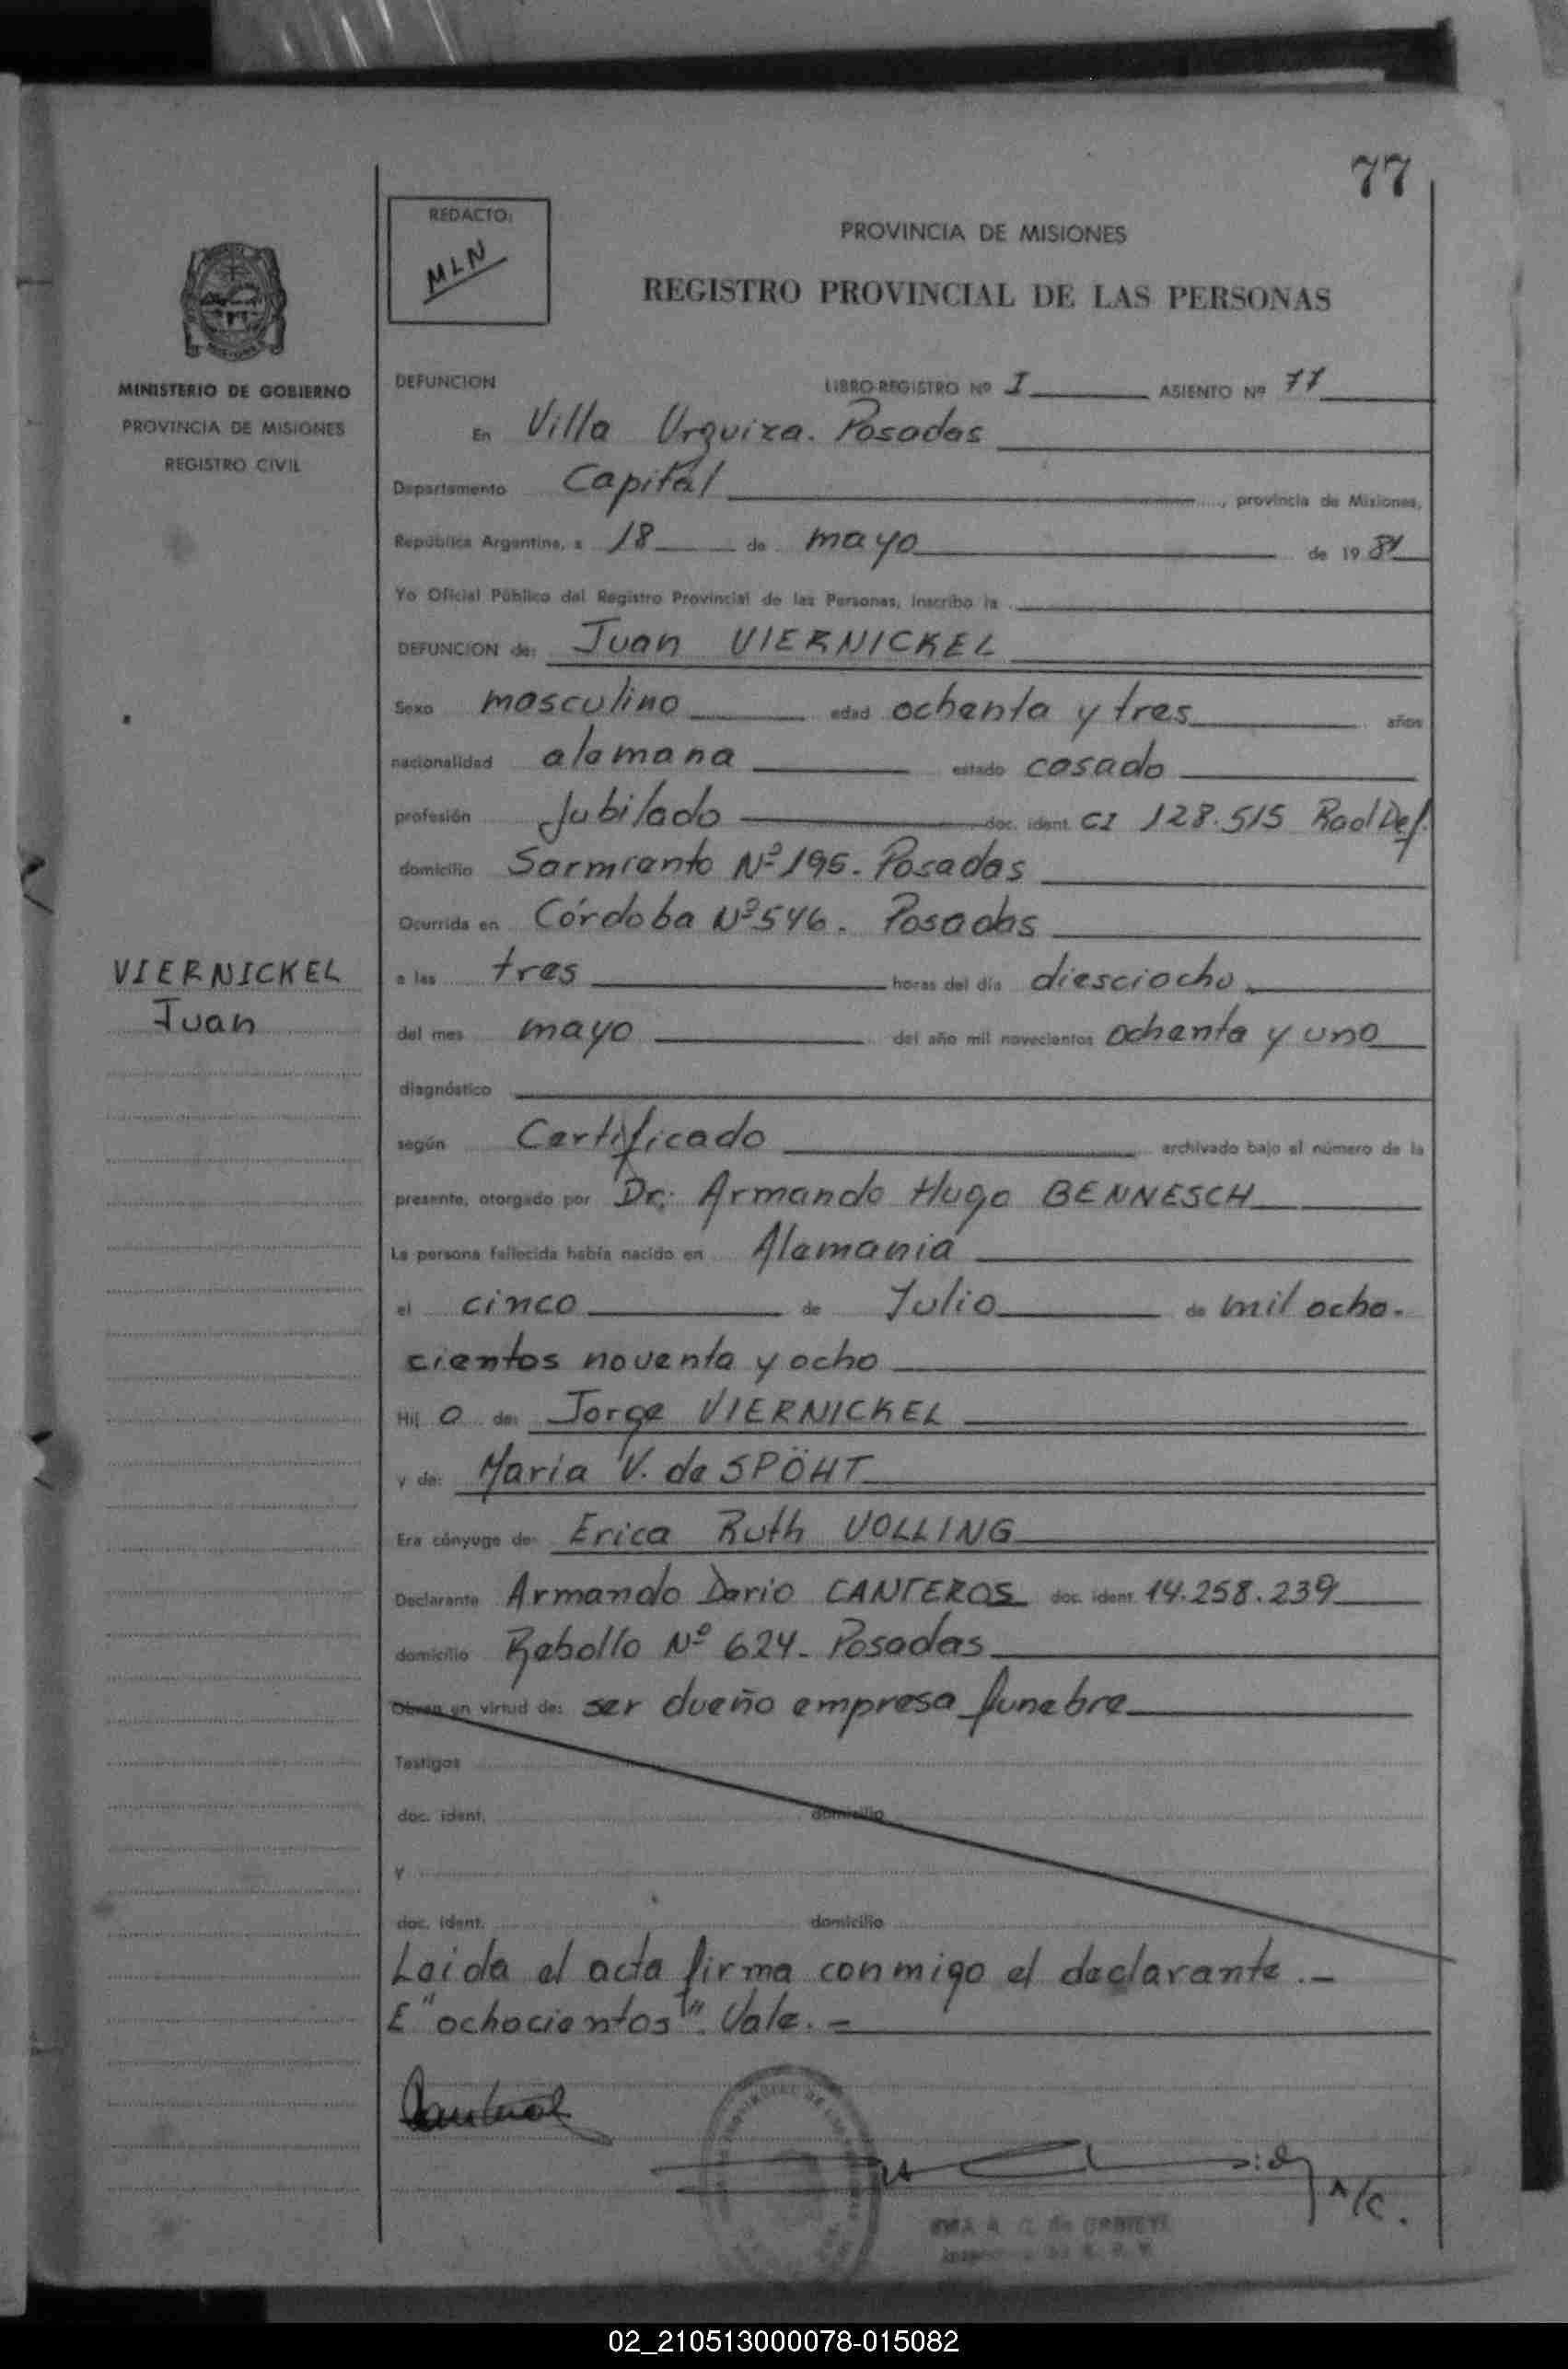 77
REDACTO:
MLN
PROVINCIA DE MISIONES
REGISTRO PROVINCIAL DE LAS PERSONAS
MISIONES
MINISTERIO DE GOBIERNO
PROVINCIA DE MISIONES
REGISTRO CIVIL
DEFUNCION LIBRO-REGISTRO Nº I ASIENTO Nº 77
En Villa Urquiza. Posadas
Departamento Capital, provincia de Misiones,
República Argentina, a 18 de mayo de 1981
Yo Oficial Público del Registro Provincial de las Personas, inscribo la
DEFUNCION de: Juan VIERNICKEL
Sexo masculino edad ochenta y tres años
nacionalidad alemana estado casado
profesión Jubilado doc. ident. CI 128.515
domicilio Sarmiento Nº 195. Posadas
Ocurrida en Córdoba Nº 546. Posadas
VIERNICKEL
Juan
a las tres horas del día diesciocho
del mes mayo del año mil novecientos ochenta y uno
diagnóstico
según Certificado archivado bajo el número de la
presente, otorgado por Dr. Armando Hugo BENNESCH
La persona fallecida había nacido en Alemania
el cinco de Julio de mil ocho-
cientos noventa y ocho
Hij o de: Jorge VIERNICKEL
y de: Maria V. de SPÖHT
Era cónyuge de: Erica Ruth VOLLING
Declarante Armando Dario CANTEROS doc. ident. 14.258.239
domicilio Rebollo Nº 624- Posadas
Obran en virtud de: ser dueño empresa funebre
Testigos
doc. ident. domicilio
y
doc. ident. domicilio
Leida el acta firma conmigo el declarante.-
E "ochocientos". Vale.-
A/C.
02_210513000078-015082